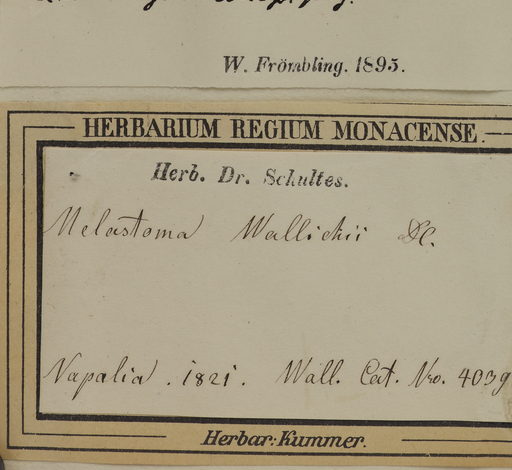 W. Frömbling. 1895.
HERBARIUM REGIUM MONACENSE.
Herb. Dr. Schultes.
Melastoma Wallichii DC.
Napalia. 1821. Wall. Cat. Nro. 4039
Herbar: Kummer.